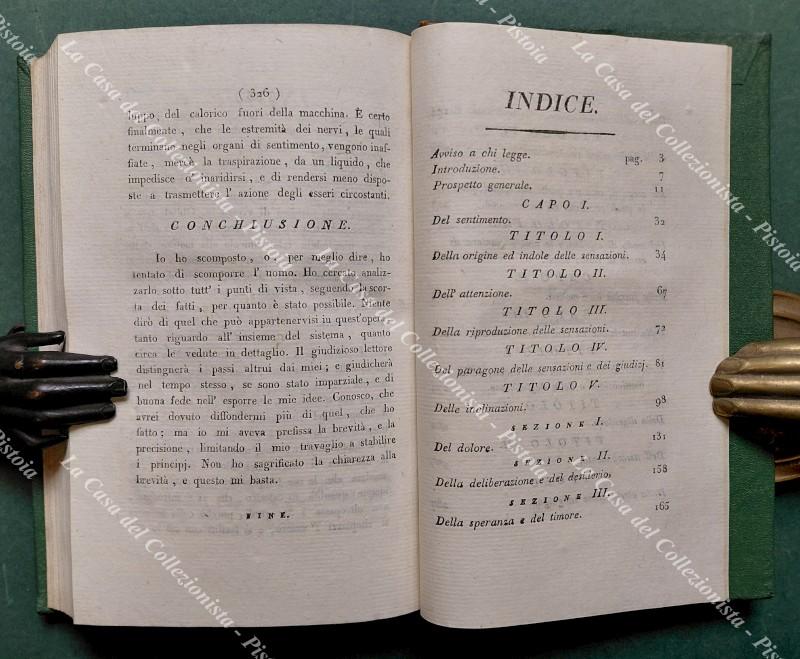 ( 326 )
luppo, del calorico fuori della macchina. È certo
finalmente, che le estremità dei nervi, le quali
terminano negli organi di sentimento, vengono inaf-
fiate, mercè la traspirazione, da un liquido, che
impedisce d' inaridirsi, e di rendersi meno dispo-
ste a trasmettere l' azione degli esseri circostanti.
CONCHIUSIONE.
Io ho scomposto, o per meglio dire, ho
tentato di scomporre l' uomo. Ho cercato analiz-
zarlo sotto tutt' i punti di vista, seguendo la scor-
ta dei fatti, per quanto è stato possibile. Niente
dirò di quel che può appartenervisi in quest'opera,
tanto riguardo all' insieme del sistema, quanto
circa le vedute in dettaglio. Il giudizioso lettore
distinguerà i passi altrui dai miei; e giudicherà
nel tempo stesso, se sono stato imparziale, e di
buona fede nell' esporre le mie idee. Conosco, che
avrei dovuto diffondermi più di quel, che ho
fatto; ma io mi aveva prefissa la brevità, e la
precisione, limitando il mio travaglio a stabilire
i principj. Non ho sagrificato la chiarezza alla
brevità, e questo mi basta.
FINE.
INDICE.
Avviso a chi legge. pag. 3
Introduzione. 7
Prospetto generale. 11
CAPO I.
Del sentimento. 32
TITOLO I.
Della origine ed indole delle sensazioni. 34
TITOLO II.
Dell' attenzione. 67
TITOLO III.
Della riproduzione delle sensazioni. 72
TITOLO IV.
Del paragone delle sensazioni e dei giudizj. 81
TITOLO V.
Delle inclinazioni. 98
SEZIONE I.
Del dolore. 131
SEZIONE II.
Della deliberazione e del desiderio. 158
SEZIONE III.
Della speranza e del timore. 165
La Casa del Collezionista - Pistoia